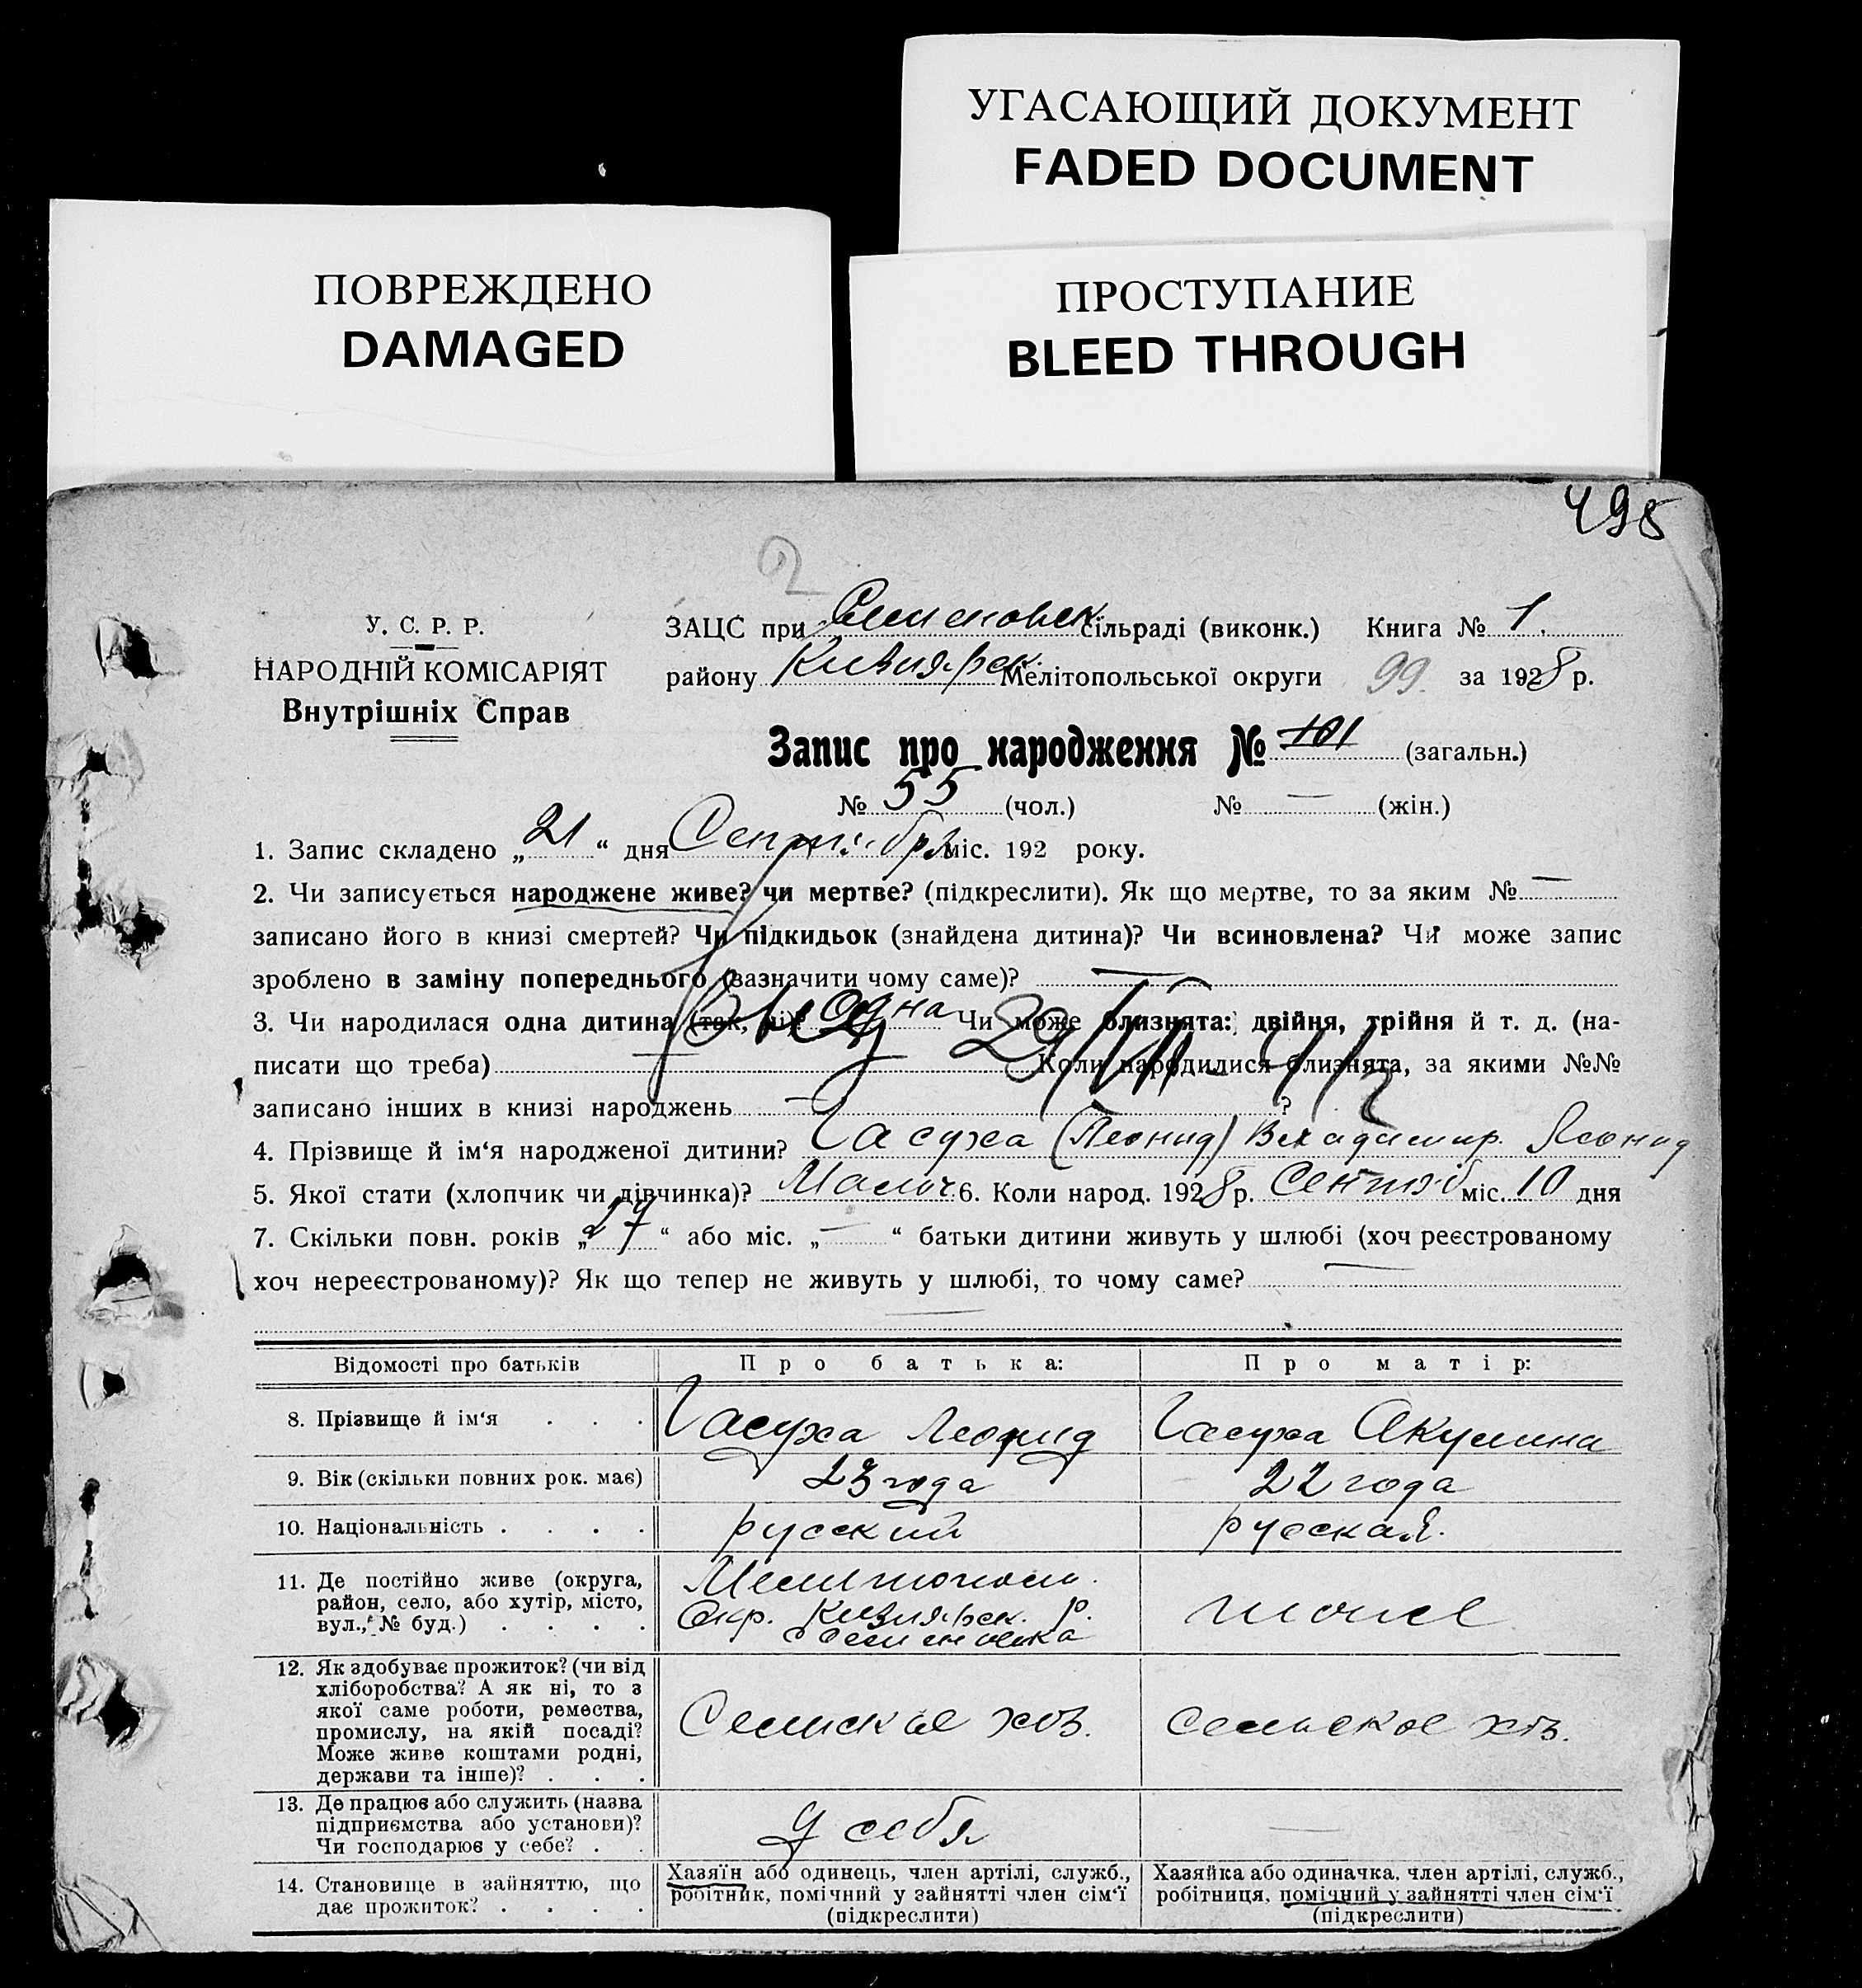 УГАСАЮЩИЙ ДОКУМЕНТ
FADED DOCUMENT
ПОВРЕЖДЕНО
DAMAGED
ПРОСТУПАНИЕ
BLEED THROUGH
495
2
У. С. Р. Р.
НАРОДНІЙ КОМІСАРІЯТ
Внутрішніх Справ
ЗАЦС при Семеновск. сільраді (виконк.) Книга № 1.
району Кизиярск. Мелітопольської округи 99. за 1928 р.
Запис про народження № 101 (загальн.)
№ 55 (чол.) № — (жін.)
1. Запис складено „21“ дня Сентября міс. 192 року.
2. Чи записується народжене живе? чи мертве? (підкреслити). Як що мертве, то за яким № —
записано його в книзі смертей? Чи підкидьок (знайдена дитина)? Чи всиновлена? Чи може запис
зроблено в заміну попереднього (зазначити чому саме)? —
3. Чи народилася одна дитина (так, ні)? одна Чи може близнята: двійня, трійня й т. д. (на-
писати що треба) — Коли народилися близнята, за якими №№
записано інших в книзі народжень — ?
4. Прізвище й ім‘я народженої дитини? Часуха (Леонид) Владимир. Леонид
5. Якої стати (хлопчик чи дівчинка)? Мальч 6. Коли народ. 1928 р. Сентяб міс. 10 дня
7. Скільки повн. років „ “ або міс. „—“ батьки дитини живуть у шлюбі (хоч реєстрованому
хоч нереєстрованому)? Як що тепер не живуть у шлюбі, то чому саме? —
Відомості про батьків Про батька: Про матір:
8. Прізвище й ім‘я . . . Часуха Леонид Часуха Акулина
9. Вік (скільки повних рок. має) 23 года 22 года
10. Національність . . . . русский русская.
11. Де постійно живе (округа,
район, село, або хутір, місто,
вул., № буд.) . . . .
Мелитополь.
Окр. Кизиярск. р.
с Семеновка
тоже
12. Як здобуває прожиток? (чи від
хліборобства? А як ні, то з
якої саме роботи, ремества,
промислу, на якій посаді?
Може живе коштами родні,
держави та інше)? . . .
Сельское хоз. сельское хоз.
13. Де працює або служить (назва
підприємства або установи)?
Чи господарює у себе? . .
У себя —
14. Становище в зайняттю, що
дає прожиток? . . . .
Хазяїн або одинець, член артілі, служб.,
робітник, помічний у зайнятті член сім‘ї
(підкреслити)
Хазяйка або одиначка, член артілі, служб.,
робітниця, помічний у зайнятті член сім‘ї
(підкреслити)